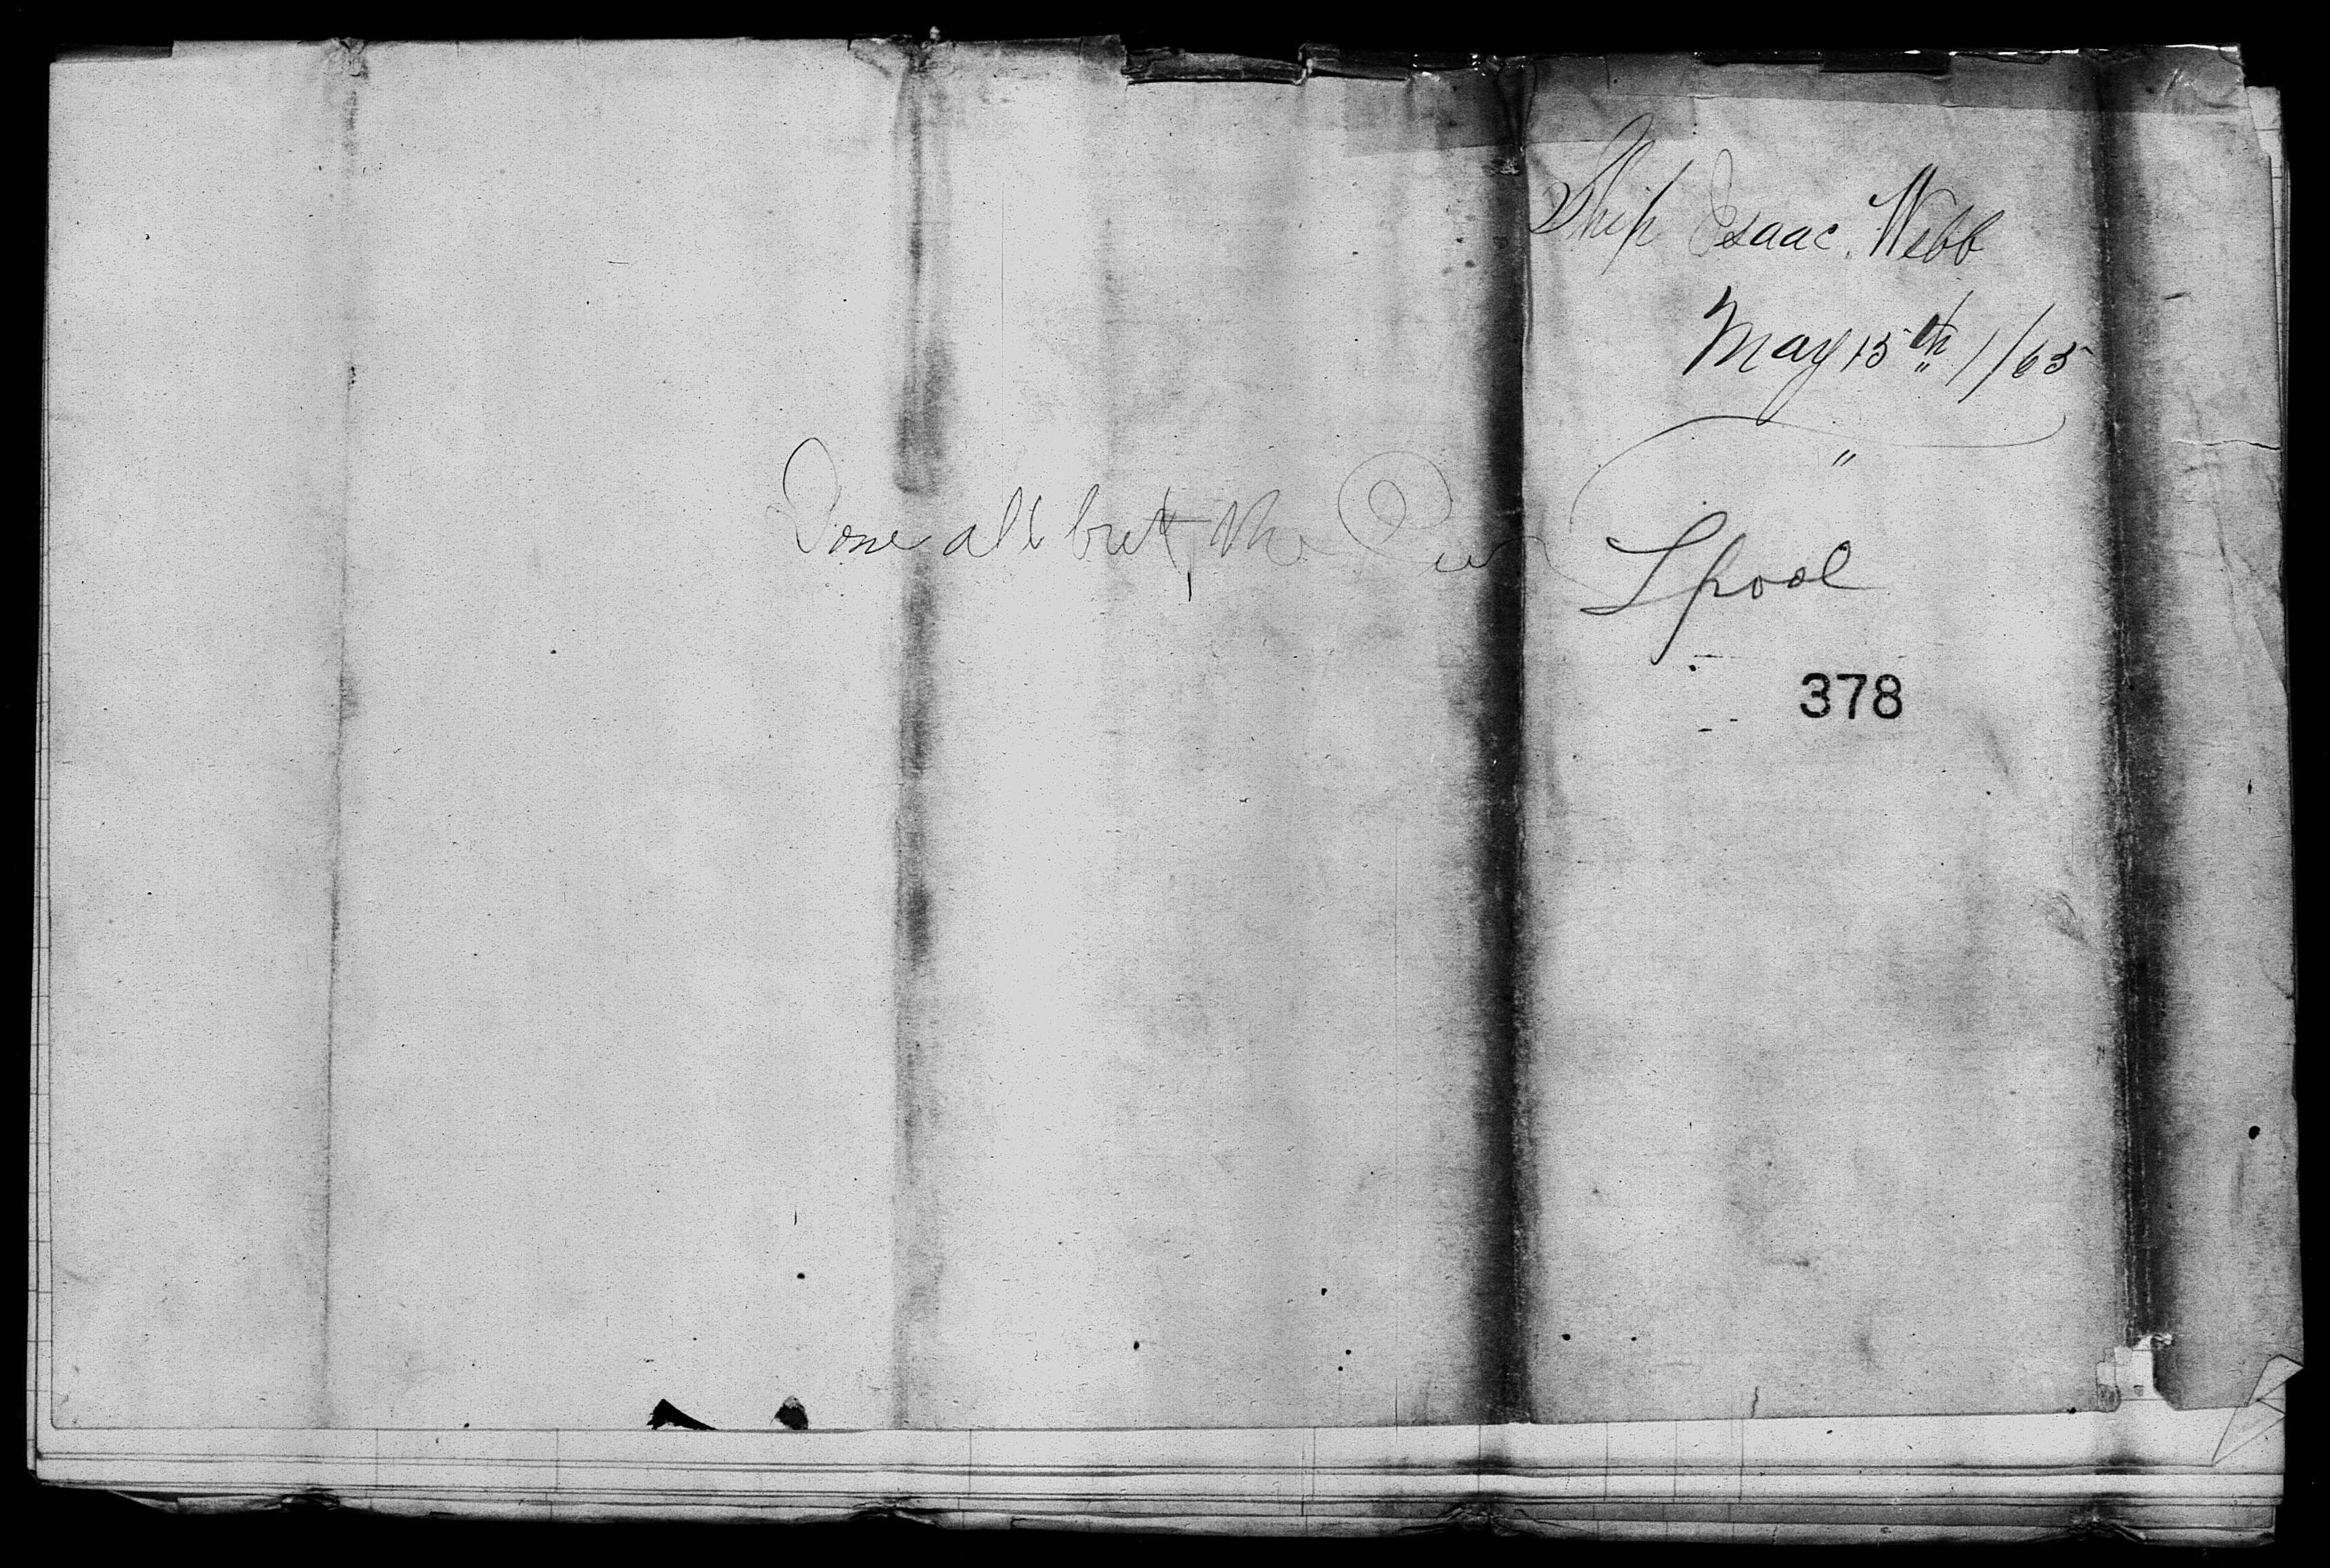 Ship Isaac Webb
May 15th 1/65
"
Lpool
378
Done all but the